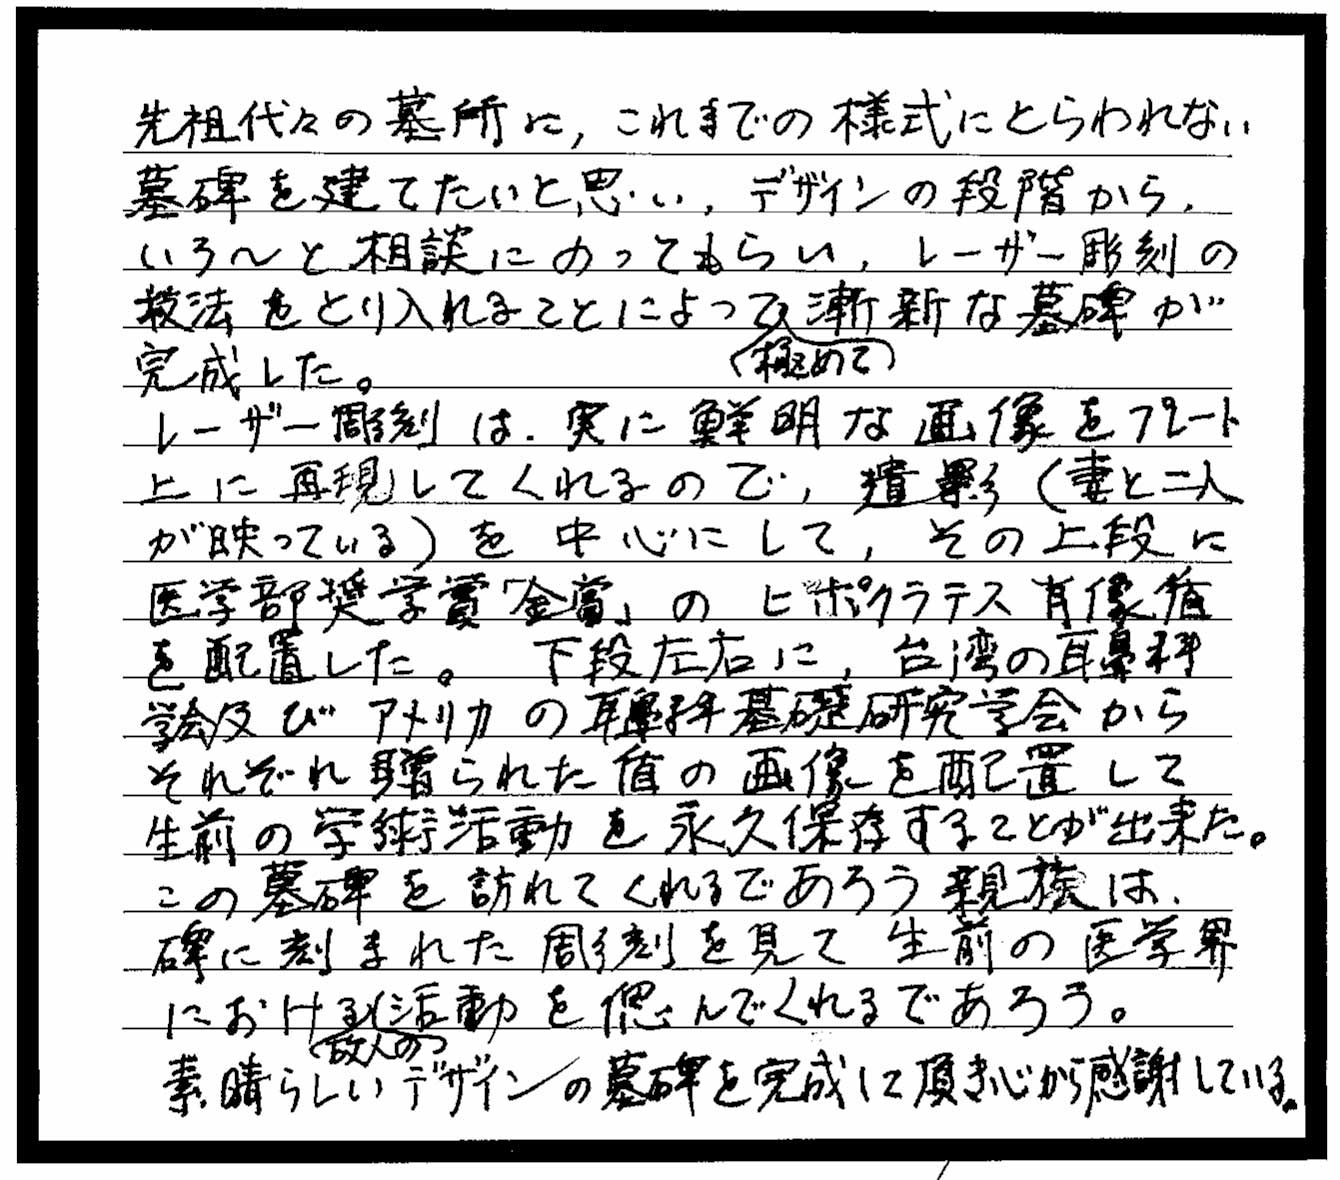 先祖代々の墓所に,これまでの様式にとらわれない
墓碑を建てたいと思い,デザインの段階から,
いろ〜と相談にのってもらい,レーザー彫刻の
技法をとり入れることによって漸新な墓碑が
(極めて)
完成した。
レーザー彫刻は,実に鮮明な画像をプレート
上に再現してくれるので,遺影(妻と二人
が映っている)を中心にして,その上段に
医学部奨学賞「金賞」のヒポクラテス肖像楯
を配置した。 下段左右に,台湾の耳鼻科
学会及びアメリカの耳鼻科基礎研究学会から
それぞれ贈られた楯の画像を配置して
生前の学術活動を永久保存することが出来た。
この墓碑を訪れてくれるであろう親族は,
碑に刻まれた彫刻を見て生前の医学界
における活動を偲んでくれるであろう。
(故人の)
素晴らしいデザインの墓碑を完成して頂き心から感謝している。